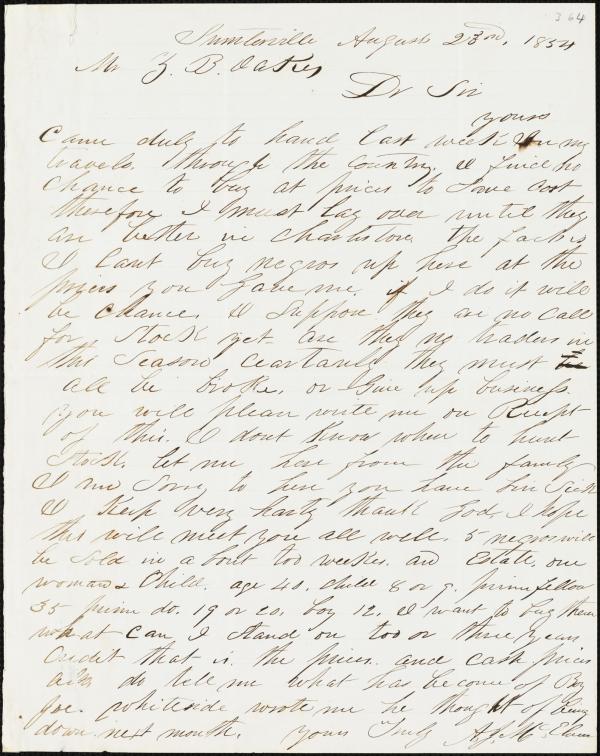 364
Sumterville August 23rd, 1854
Mr Z. B. Oakes,
Dr Sir
yours
came duly to hand last week In my
travels through the country. I find no
chance to buy at prices to Save cost
therefore I must lay over until they
are better in Charleston the fact is
I cant buy negros up here at the
prices you gave me. if I do it will
be chance. I Suppose they are no call
for Stock yet. are they no traders in
this Season ceartanly they must
all be broke, or Give up business
you will pleas write me on Receipt
of this. I dont know when to hunt
Stock. let me here from the family
I me Sorry to here you have bin Sick
I Keep very harty thank God, I hope
this will meet you all well. 5 negros will
be Sold in a bout too weekes. an Estate, one
woman & Child. age 40, child 8 or 9. prime fellow
35 prime do. 19 or 20, boy 12. I want to buy them
what can I stand on too or three years
credit that is the prices. and cash prices
do tell me what has become of Boy
Joe. whiteside wrote me he thought of being
down next month. yours Truly A. J. McElveen